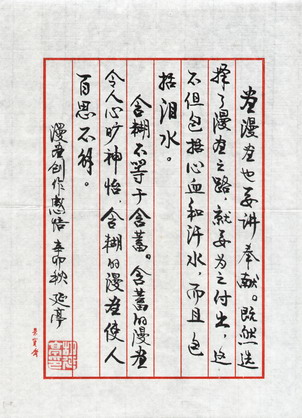 画漫画也要讲奉献。既然选
择了漫画之路，就要为之付出，这
不但包括心血和汗水，而且包
括泪水。
含糊不等于含蓄。含蓄的漫画
令人心旷神怡，含糊的漫画使人
百思不解。
漫画创作感悟 辛卯秋 延亭